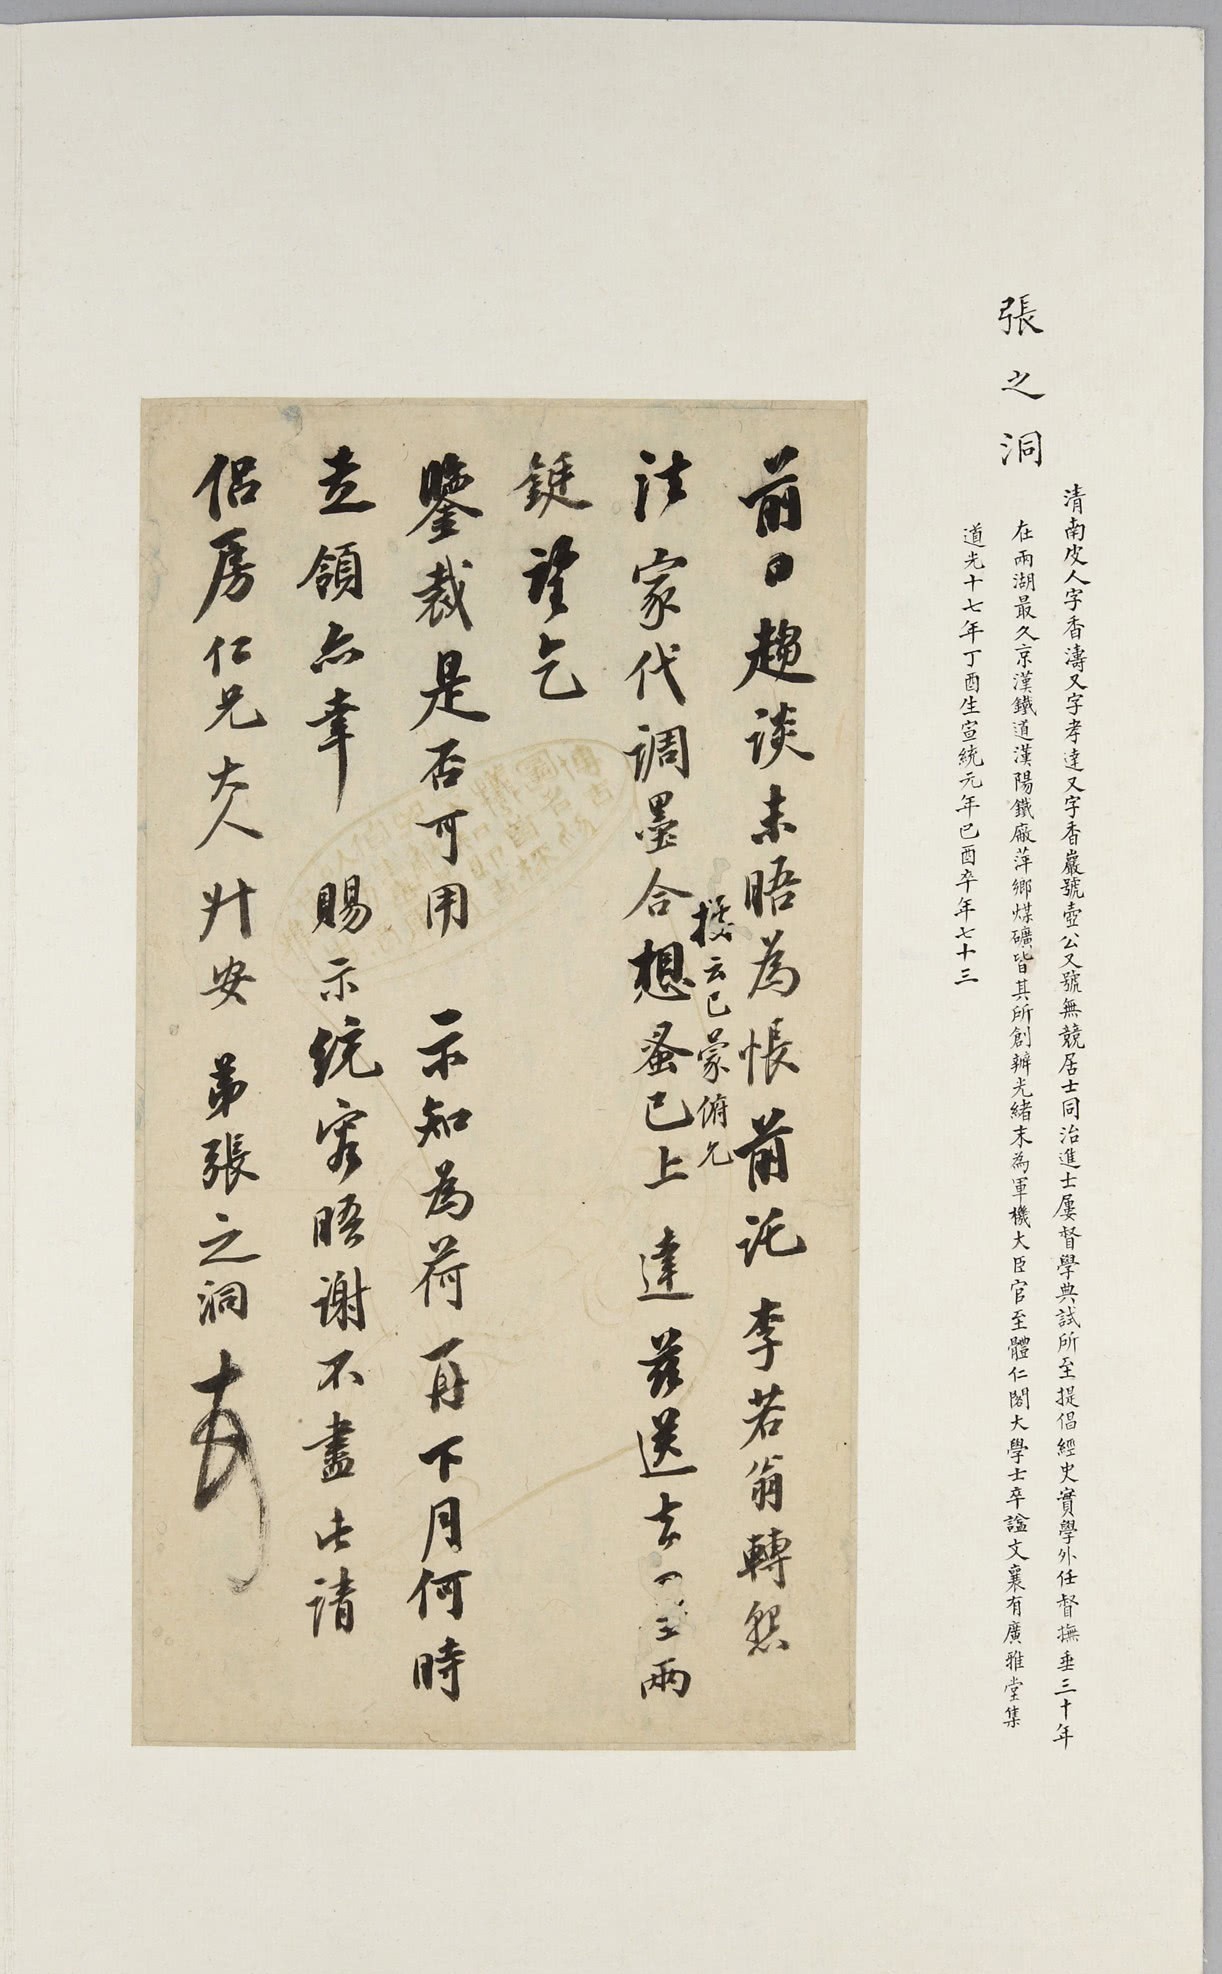 張之洞
清南皮人字香濤又字孝達又字香巖號壺公又號無競居士同治進士屢督學典試所至提倡經史實學外任督撫垂三十年
在兩湖最久京漢鐵道漢陽鐵廠萍鄉煤礦皆其所創辦光緒末為軍機大臣官至體仁閣大學士卒諡文襄有廣雅堂集
道光十七年丁酉生宣統元年己酉卒年七十三
前日趨談未晤為悵前託李若翁轉懇
據云已蒙俯允
法家代調墨合想蚤已上達茲送去墨兩
鋌望乞
鑒裁是否可用示知為荷再下月何時
走領亦幸賜示統容晤謝不盡此請
侶房仁兄大人升安弟張之洞